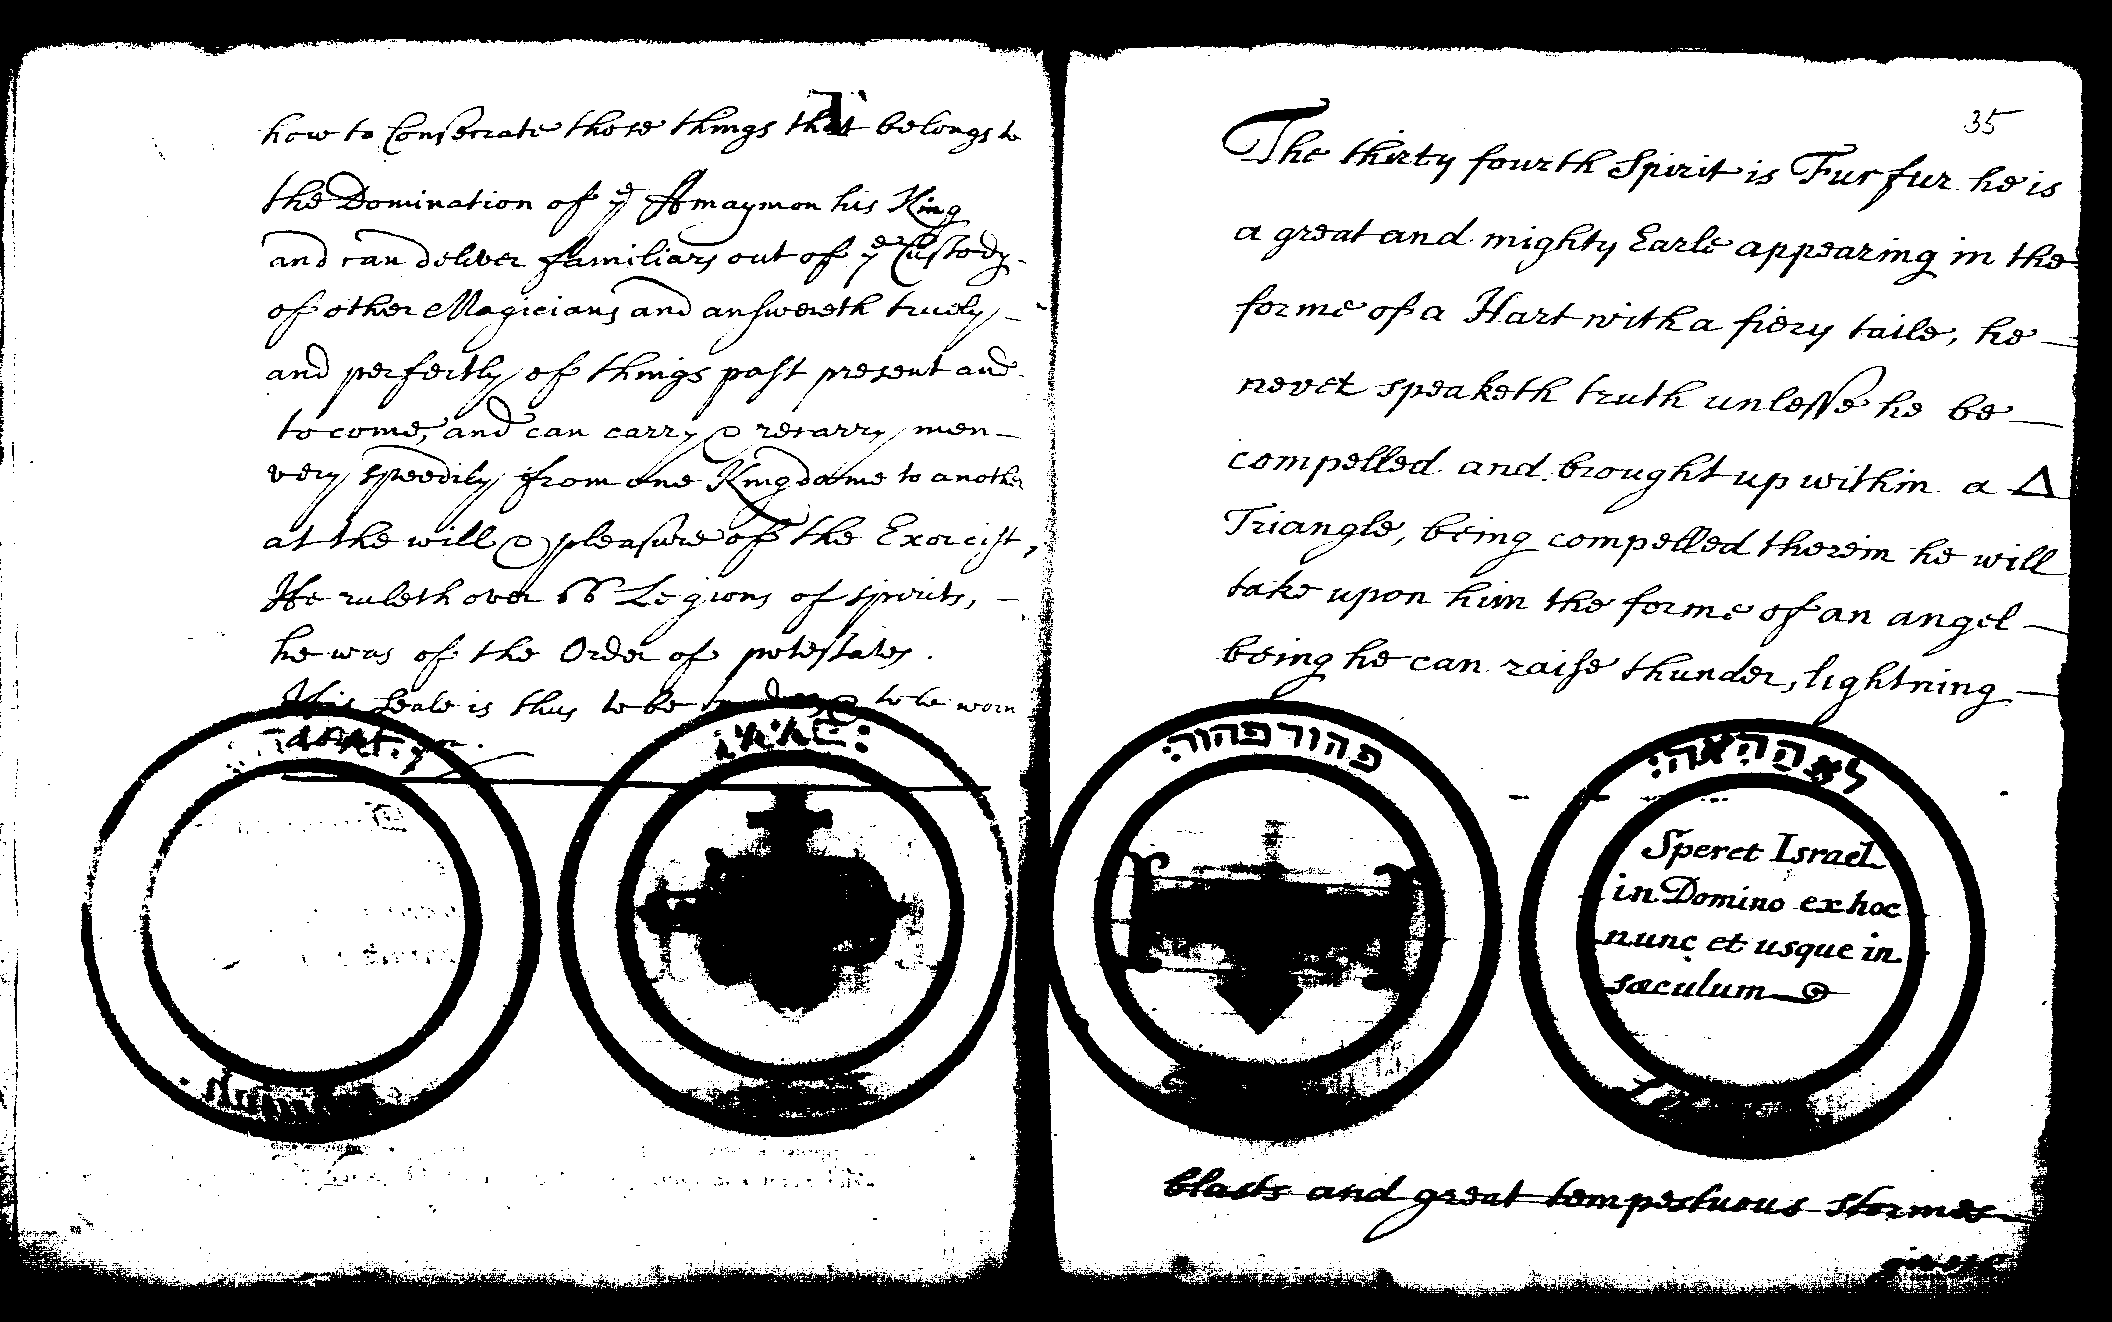 how to Consecrate those things that belongs to
the Domination of yᵉ Amaymon his King
and can deliver familiars out of yᵉ Custody
of other Magicians and answereth truely
and perfectly of things past present and
to come, and can carry & recarry men
very speedily from one Kingdome to another
at the will & pleasure of the Exorcist,
He ruleth over 66 Legions of spirits,
he was of the Order of potestates.
His Seale is thus to be & to be worn
35
The thirty fourth Spirit is Furfur he is
a great and mighty Earle appearing in the
forme of a Hart with a fiery taile, he
never speaketh truth unlesse he be
compelled and brought up within a Δ
Triangle, being compelled therein he will
take upon him the forme of an angel
being he can raise thunder, lightning
פהור פהור:
לאההאה:
Speret Israel
in Domino ex hoc
nunc et usque in
sæculum
blasts and great tempestuous stormes